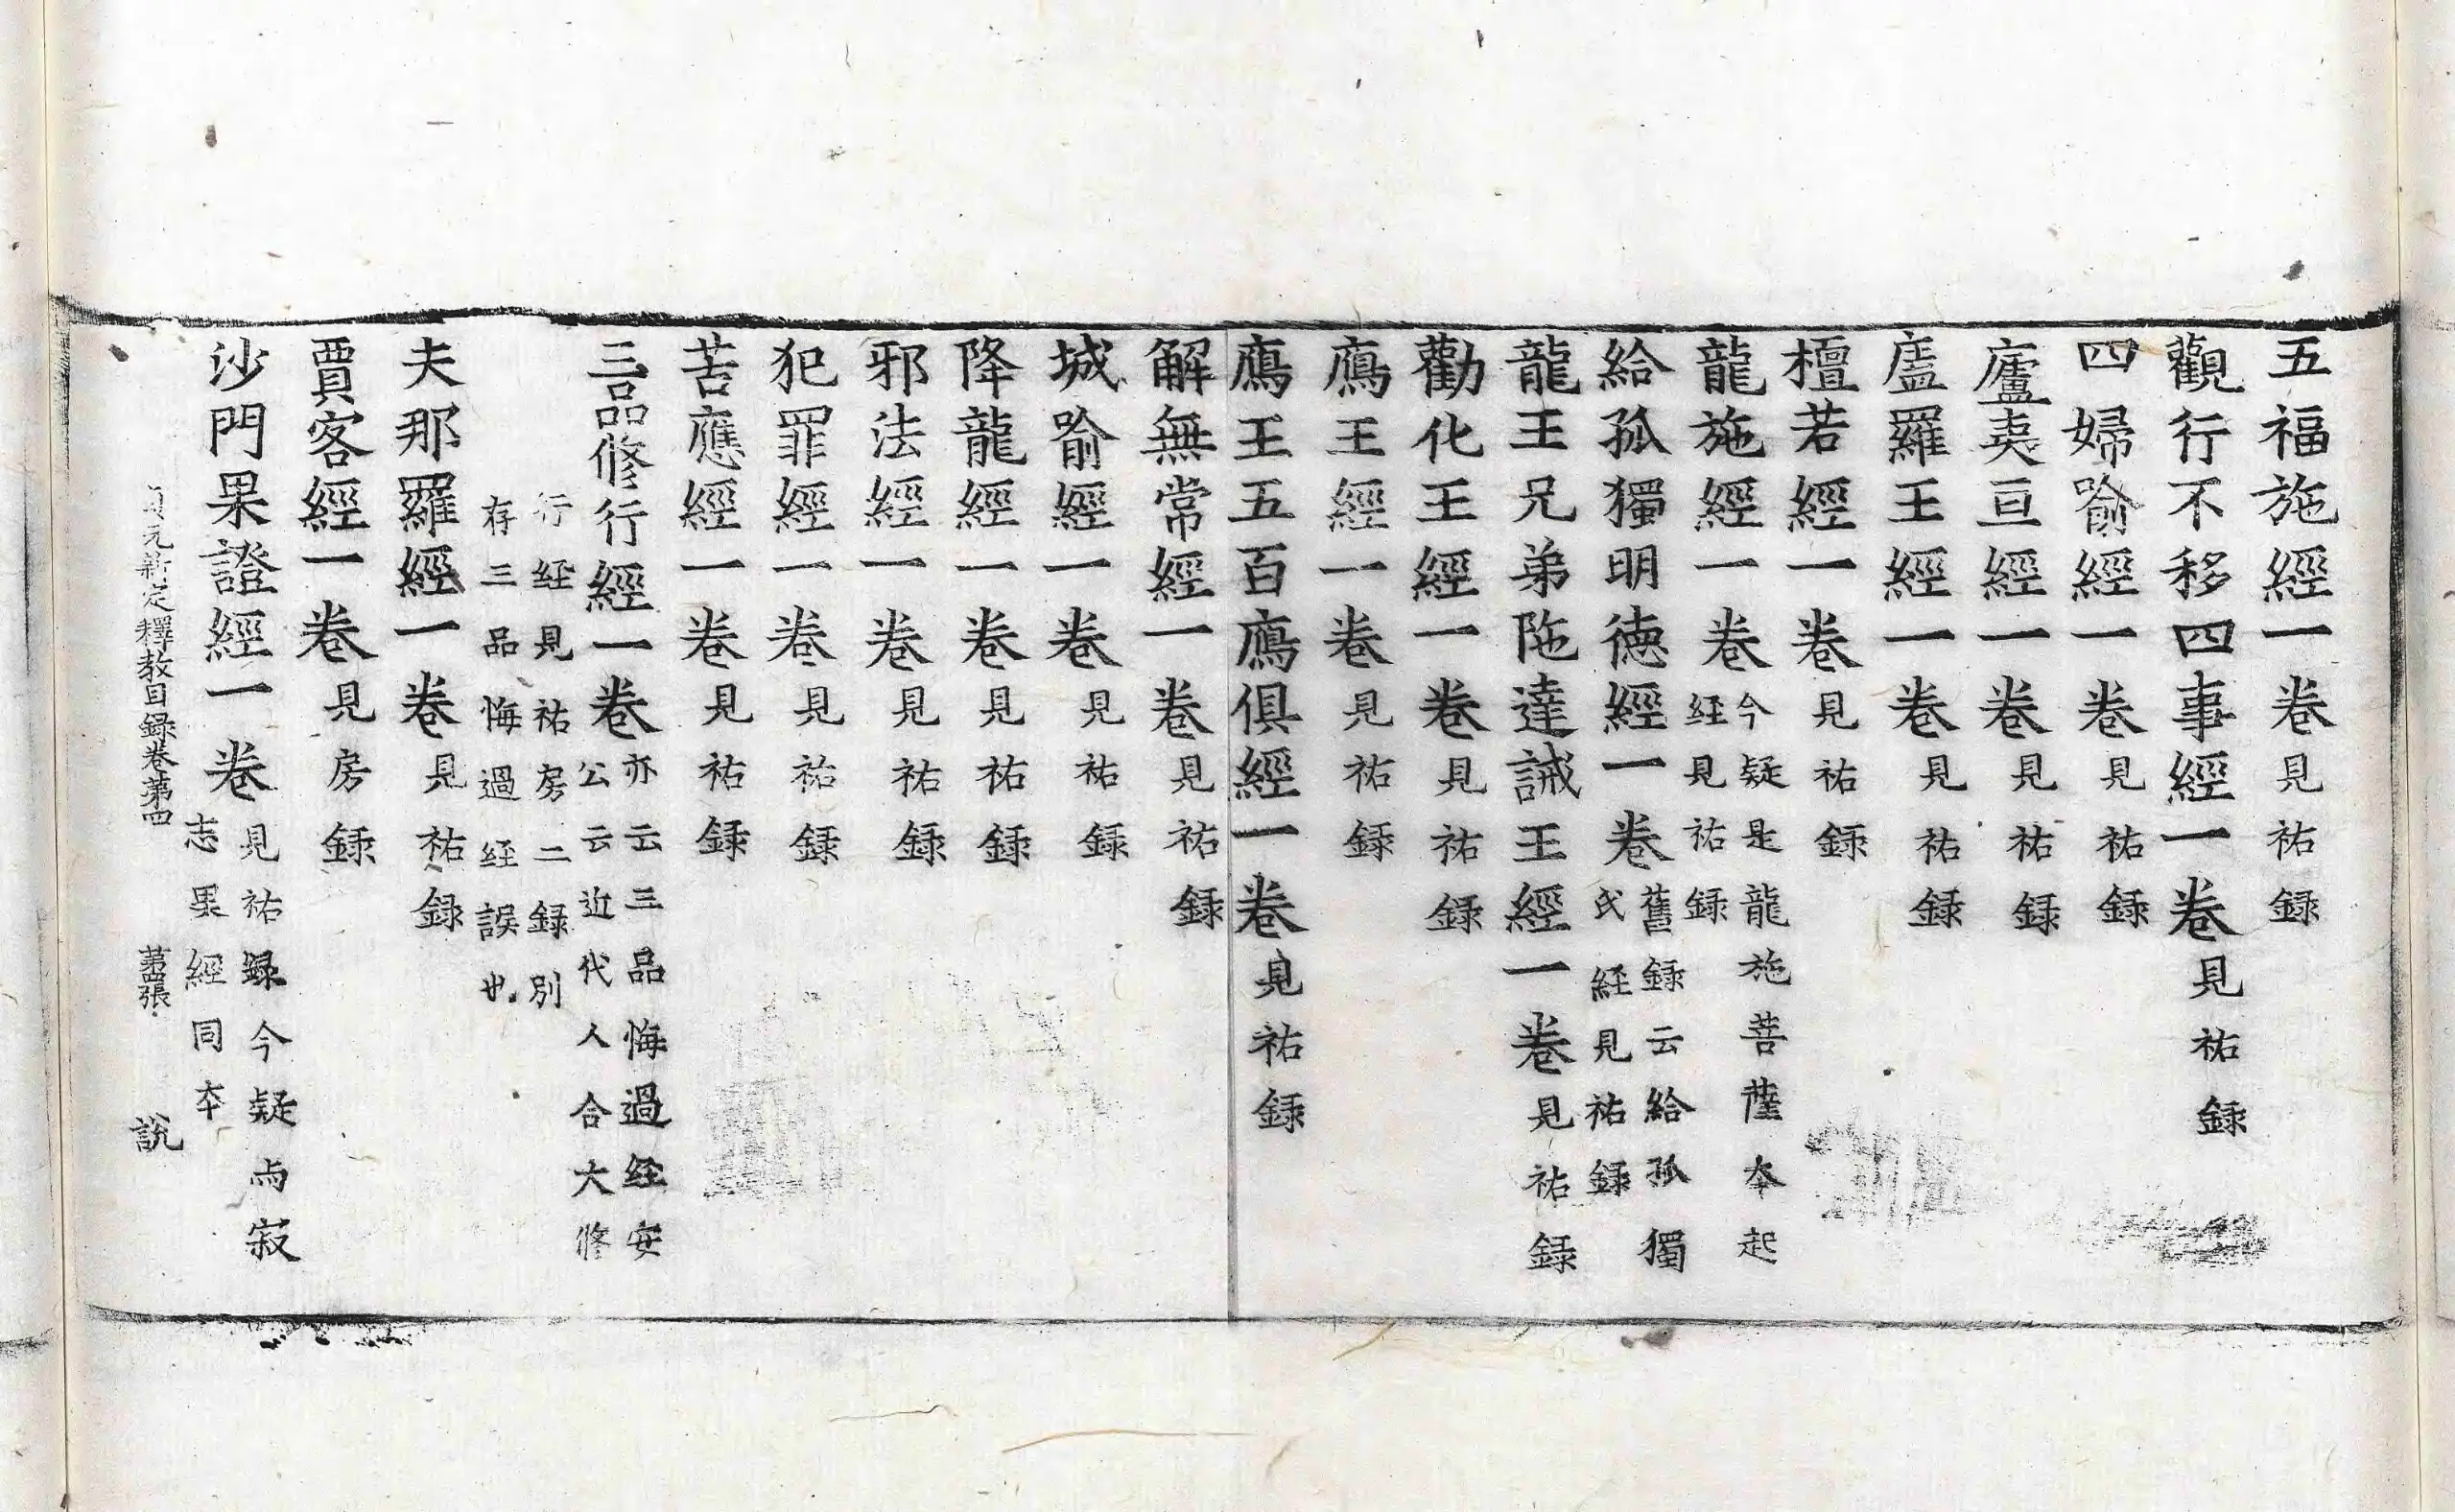 五福施經一卷見祐録
觀行不移四事經一卷見祐録
四婦喻經一卷見祐録
廬夷亘經一卷見祐録
廅羅王經一卷見祐録
檀若經一卷見祐録
龍施經一卷今疑是龍施菩薩本起
經見祐録
給孤獨明德經一卷舊録云給孤獨
氏經見祐録
龍王兄弟陁達誡王經一卷見祐録
勸化王經一卷見祐録
鴈王經一卷見祐録
鴈王五百鴈俱經一卷見祐録
解無常經一卷見祐録
城喻經一卷見祐録
降龍經一卷見祐録
邪法經一卷見祐録
犯罪經一卷見祐録
苦應經一卷見祐録
三品修行經一卷亦云三品悔過经安
公云近代人合大修
行经見祐房二録別
存三品悔過经誤也
夫那羅經一卷見祐録
賈客經一卷見房録
沙門果證經一卷見祐録今疑与寂
志果經同本
貞元新定釋教目録卷第四 第四張 說